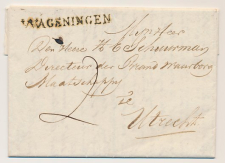 WAGENINGEN
Mijnheer
Den Heere H C Schuurman
Directeur der Brand waarborg
Maatschappij
2 te
Utrecht